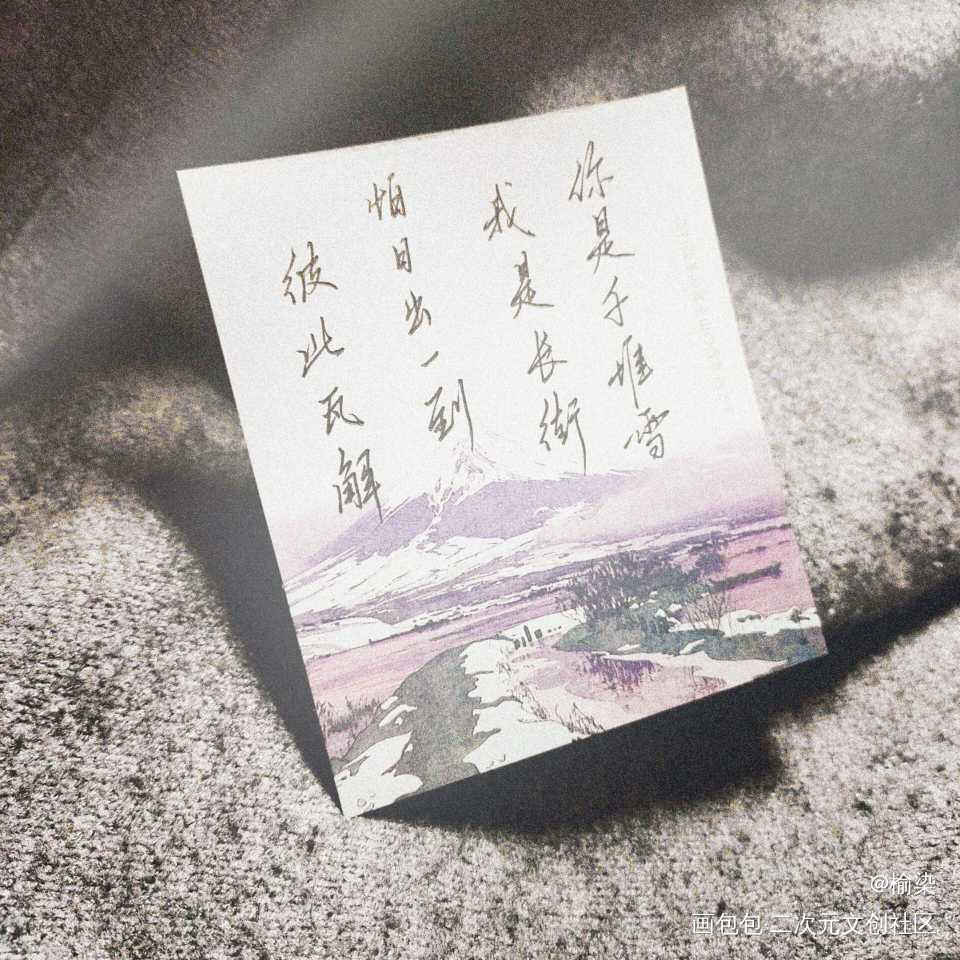 你是千堆雪
我是长街
怕日出一到
彼此瓦解
@榆染
画包包·二次元文创社区